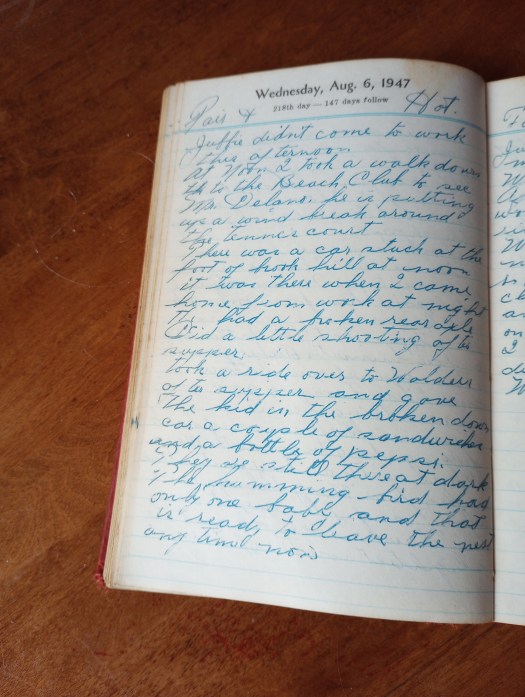 Wednesday, Aug. 6, 1947
218th day — 147 days follow
Fair & Hot.
didnt come to work
this afternoon
At Noon I took a walk down
to the Beach Club to see
Mr Delano. he is putting
up a wind break around
the tennis court
There was a car stuck at the
foot of hook hill at noon
it was there when I came
home from work at night
had a broken rear axle
Did a little shooting after
supper.
took a ride over to
after supper and gave
the kid in the broken down
car a couple of sandwiches
and a bottle of pepsi.
still there at dark
The humming bird had
only one baby and that
is ready to leave the nest
any time now